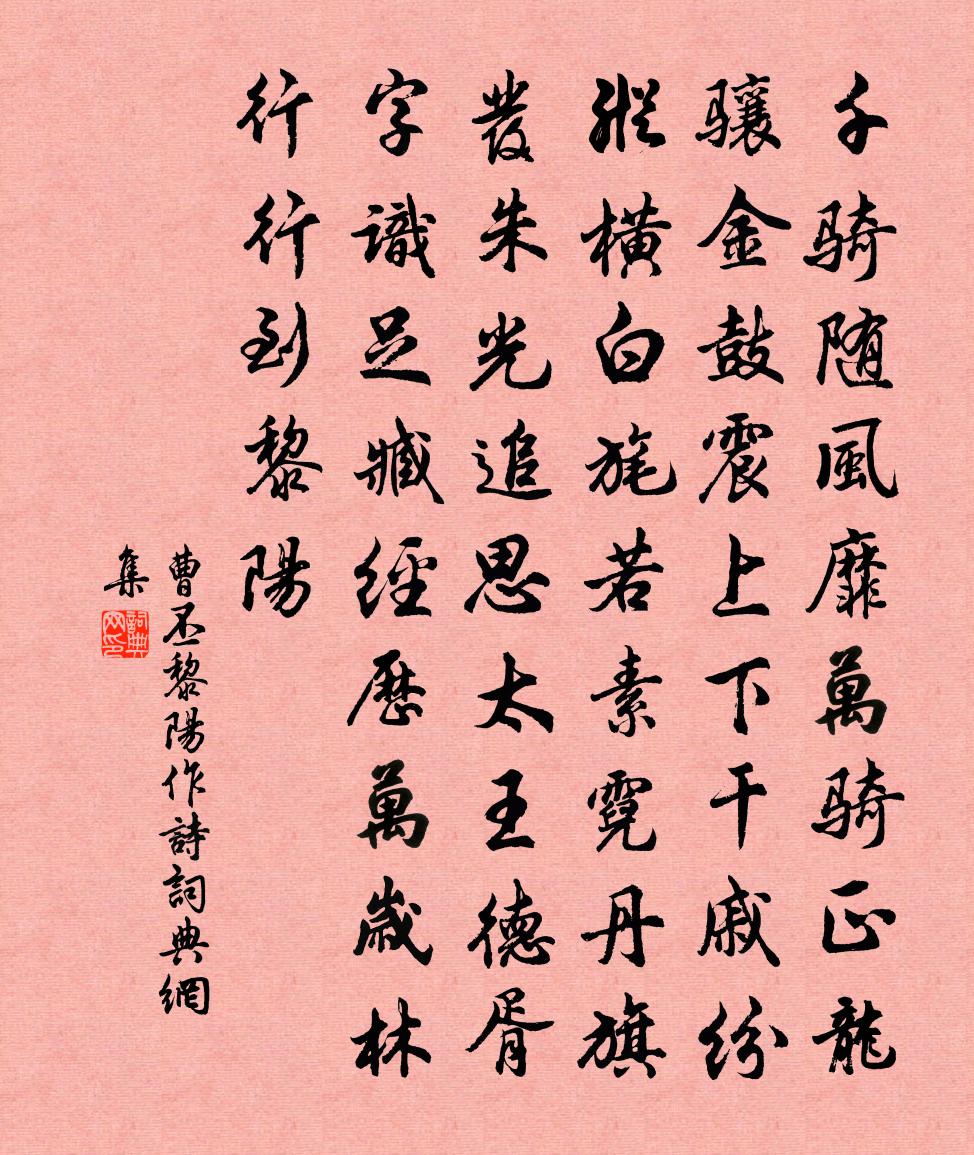 千骑随風靡萬骑正龍
驤金鼓震上下干戚纷
縱橫白旄若素霓丹旗
發朱光追思太王德胥
字識足臧經歷萬歲林
行行到黎陽
曹丕黎陽作詩詞典網
集
詞典
网印